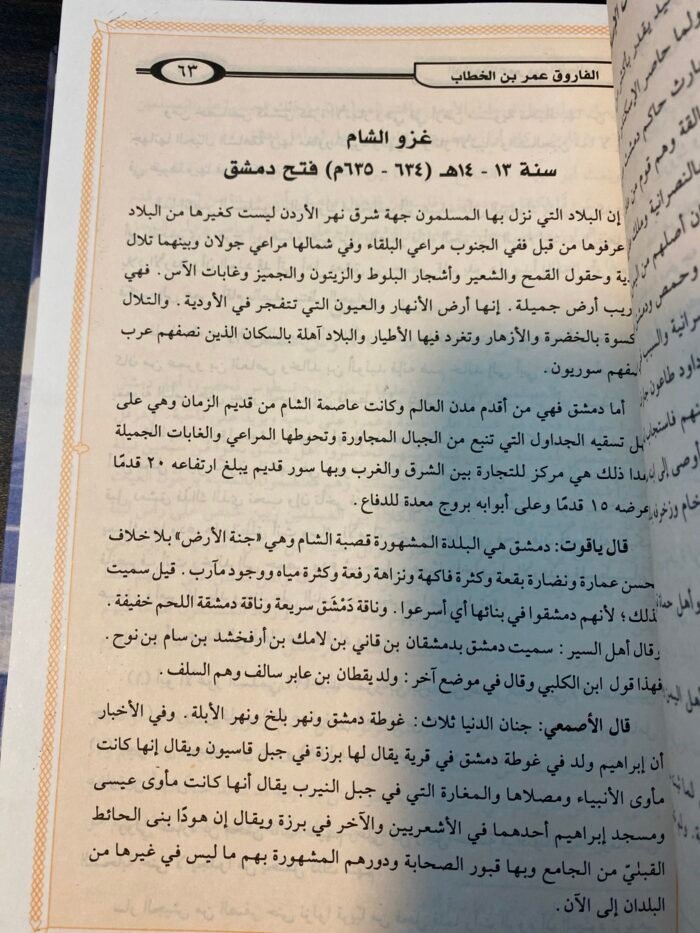 ٦٣
الفاروق عمر بن الخطاب
غزو الشام
سنة ١٣ - ١٤هـ (٦٣٤ - ٦٣٥م) فتح دمشق
إن البلاد التي نزل بها المسلمون جهة شرق نهر الأردن ليست كغيرها من البلاد
عرفوها من قبل ففي الجنوب مراعي البلقاء وفي شمالها مراعي جولان وبينهما تلال
وحقول القمح والشعير وأشجار البلوط والزيتون والجميز وغابات الآس. فهي
ريب أرض جميلة. إنها أرض الأنهار والعيون التي تتفجر في الأودية. والتلال
كسوة بالخضرة والأزهار وتغرد فيها الأطيار والبلاد آهلة بالسكان الذين نصفهم عرب
صفهم سوريون.
أما دمشق فهي من أقدم مدن العالم وكانت عاصمة الشام من قديم الزمان وهي على
تسقيه الجداول التي تنبع من الجبال المجاورة وتحوطها المراعي والغابات الجميلة
عدا ذلك هي مركز للتجارة بين الشرق والغرب وبها سور قديم يبلغ ارتفاعه ٢٠ قدمًا
عرضه ١٥ قدمًا وعلى أبوابه بروج معدة للدفاع.
قال ياقوت: دمشق هي البلدة المشهورة قصبة الشام وهي «جنة الأرض» بلا خلاف
لحسن عمارة ونضارة بقعة وكثرة فاكهة ونزاهة رفعة وكثرة مياه ووجود مآرب. قيل سميت
لذلك؛ لأنهم دمشقوا في بنائها أي أسرعوا. وناقة دَمْشَق سريعة وناقة دمشقة اللحم خفيفة.
وقال أهل السير: سميت دمشق بدمشقان بن قاني بن لامك بن أرفخشد بن سام بن نوح.
فهذا قول ابن الكلبي وقال في موضع آخر: ولد يقطان بن عابر سالف وهم السلف.
قال الأصمعي: جنان الدنيا ثلاث: غوطة دمشق ونهر بلخ ونهر الأبلة. وفي الأخبار
أن إبراهيم ولد في غوطة دمشق في قرية يقال لها برزة في جبل قاسيون ويقال إنها كانت
مأوى الأنبياء ومصلاها والمغارة التي في جبل النيرب يقال أنها كانت مأوى عيسى
ومسجد إبراهيم أحدهما في الأشعريين والآخر في برزة ويقال إن هودًا بنى الحائط
القبليّ من الجامع وبها قبور الصحابة ودورهم المشهورة بهم ما ليس في غيرها من
البلدان إلى الآن.